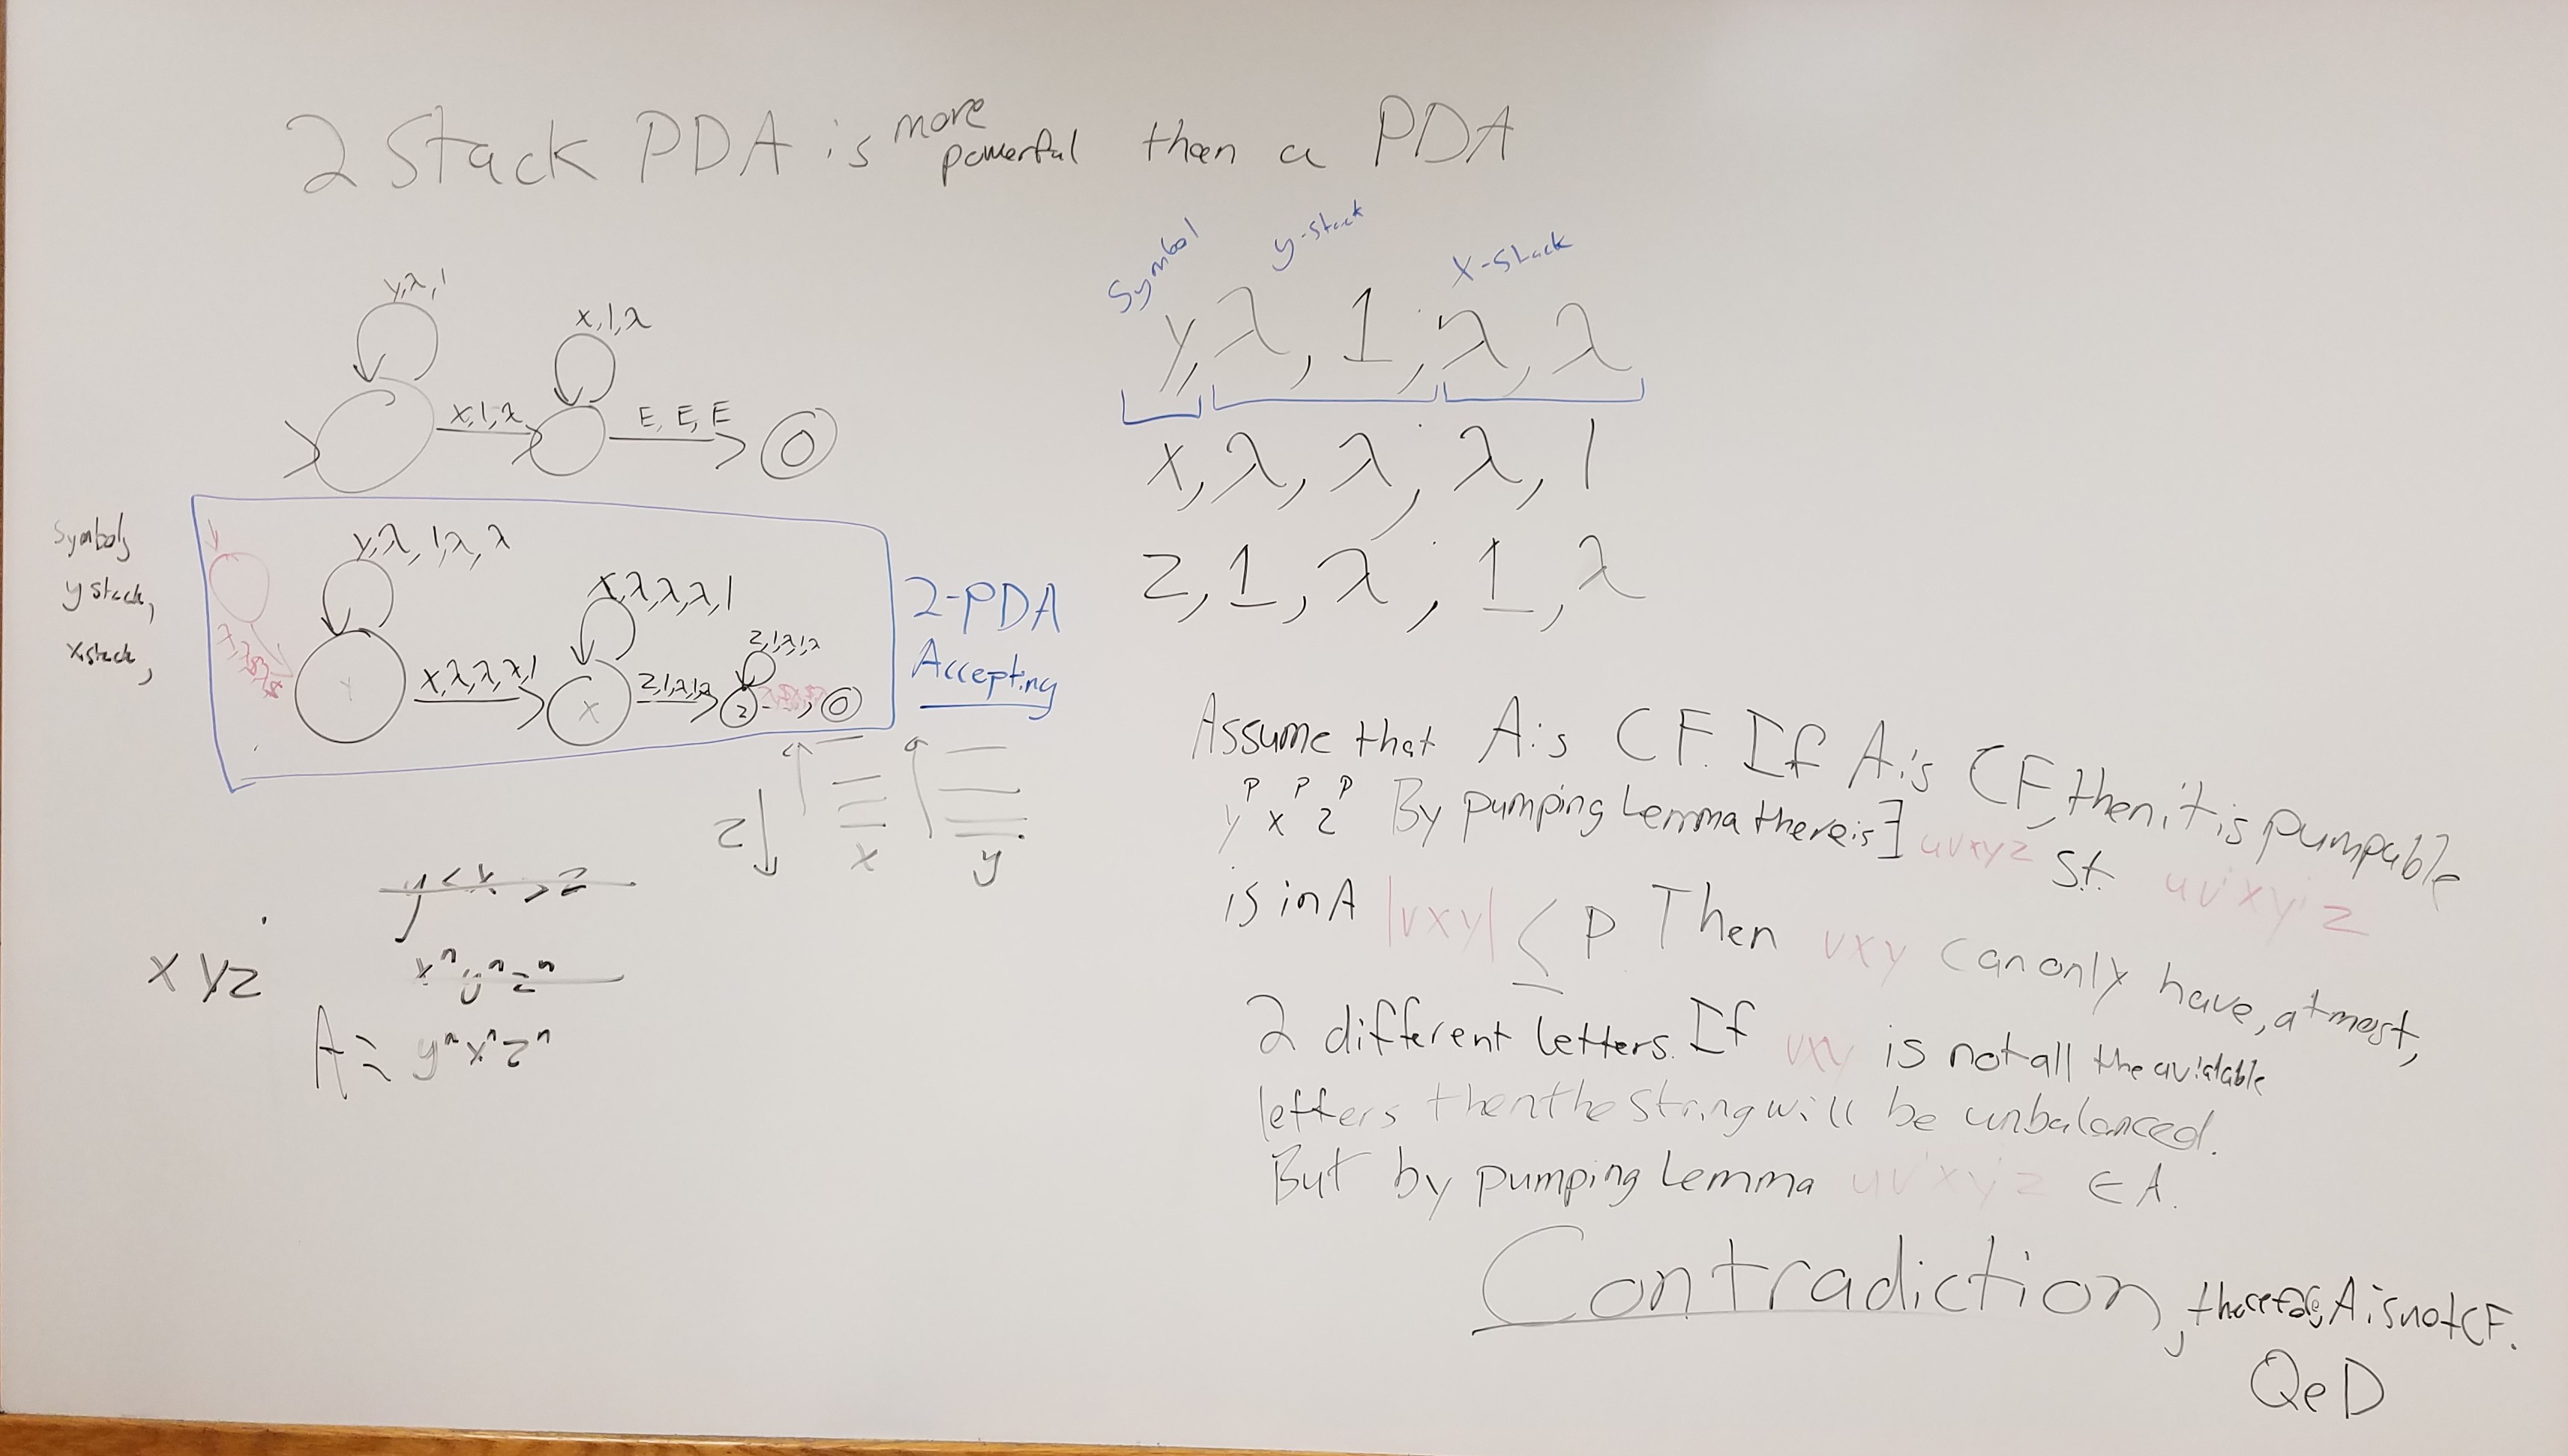 2 Stack PDA is more powerful than a PDA
y,λ,1
x,1,λ
x,1,λ
E, E, E
Symbol y-stack x-stack
y, λ, 1, λ, λ
x, λ, λ, λ, 1
z, 1, λ, 1, λ
Symbol,
y stack,
x stack,
y,λ,1,λ,λ
x,λ,λ,λ,1
z,1,λ,1,λ
y
x,λ,λ,λ,1
x
z,1,λ,1,λ
z
2-PDA
Accepting
z
x
y
y < x > z
xⁿyⁿzⁿ
x y z
A = yⁿxⁿzⁿ
Assume that A is CF. If A is CF, then it is pumpable
yᵖ xᵖ zᵖ By pumping Lemma there is ∃ uvxyz st. uvⁱxyⁱz
is in A |vxy| ≤ p Then vxy can only have, at most,
2 different letters. If vxy is not all the avialable
letters then the string will be unbalanced.
But by pumping Lemma uvⁱxyⁱz ∈ A.
Contradiction, therefore, A is not CF.
QeD